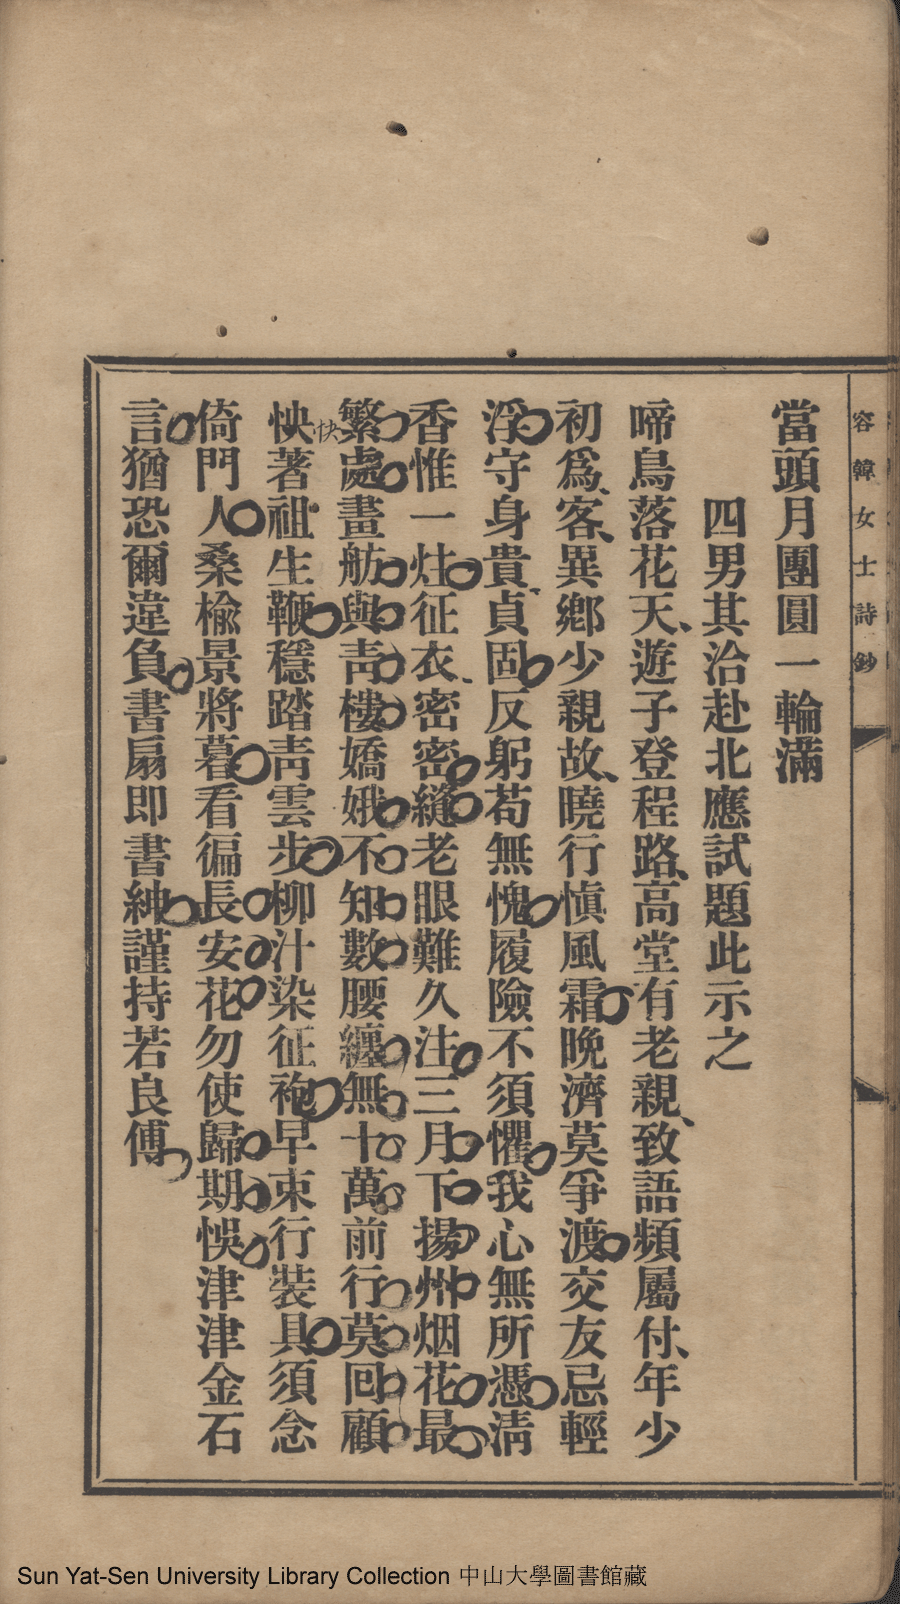 容韓女士詩鈔
當頭月團圓一輪滿
四男其治赴北應試題此示之
啼鳥落花天遊子登程路高堂有老親致語頻屬付年少
初爲客異鄕少親故曉行愼風霜晚濟莫爭渡交友忌輕
浮守身貴貞固反躬苟無愧履險不須懼我心無所憑淸
香惟一炷征衣密密縫老眼難久注三月下揚州烟花最
繁處畫舫與靑樓嬌娥不知數腰纏無十萬前行莫回顧
怏著祖生鞭穩踏靑雲步柳汁染征袍早束行裝具須念
快
倚門人桑楡景將暮看徧長安花勿使歸期悞津津金石
言猶恐爾違負書扇即書紳謹持若良傅
Sun Yat-Sen University Library Collection 中山大學圖書館藏